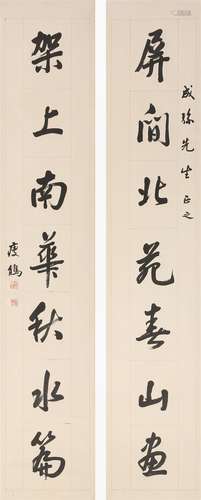 成孫先生正之
屏间北苑春山画
架上南华秋水篇
瘦鶴